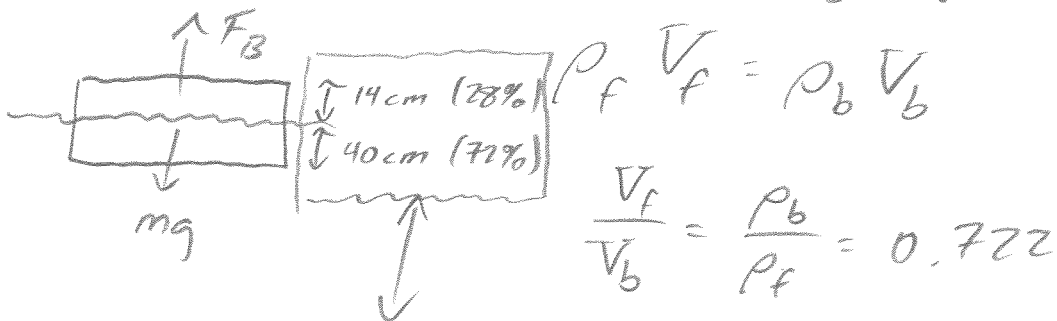 F_B
14 cm (28%)
40 cm (72%)
mg
ρ_f V_f = ρ_b V_b
V_f / V_b = ρ_b / ρ_f = 0.722